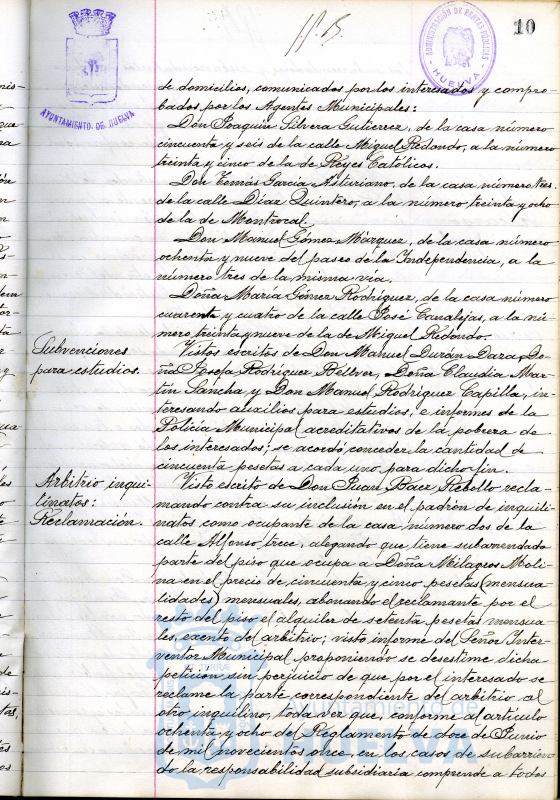 10
ADMINISTRACIÓN DE RENTAS PÚBLICAS
HUELVA
AYUNTAMIENTO DE HUELVA
de domicilios, comunicados por los interesados y compro-
bados por los Agentes Municipales:
Don Joaquín Silvera Gutierrez, de la casa número
cincuenta y seis de la calle Miguel Redondo, a la número
treinta y cinco de la de Reyes Católicos.
Don Tomás García Asturiano, de la casa número tres
de la calle Díaz Quintero, a la número treinta y ocho
de la de Montrocal.
Don Manuel Gómez Márquez, de la casa número
ochenta y nueve del paseo de la Independencia, a la
número tres de la misma vía.
Doña María Gómez Rodríguez, de la casa número
cuarenta y cuatro de la calle José Canalejas, a la nú-
mero treinta y nueve de la de Miguel Redondo.
Subvenciones
para estudios.
Vistos escritos de Don Manuel Durán Dara, Do-
ña Josefa Rodríguez Béllver, Doña Claudia Mar-
tín Sancha y Don Manuel Rodríguez Capilla, in-
teresando auxilios para estudios, e informes de la
Policía Municipal acreditativos de la pobreza de
los interesados; se acordó conceder la cantidad de
cincuenta pesetas a cada uno para dicho fin.
Arbitrio inqui-
linatos:
Reclamación.
Visto escrito de Don Juan Báez Rebollo recla-
mando contra su inclusión en el padrón de inquili-
natos como ocupante de la casa número dos de la
calle Alfonso trece, alegando que tiene subarrendada
parte del piso que ocupa a Doña Milagros Moli-
na en el precio de cincuenta y cinco pesetas (mensua-
lidades) mensuales, abonando el reclamante por el
resto del piso el alquiler de setenta pesetas mensua-
les, exento del arbitrio; visto informe del Señor Inter-
ventor Municipal proponiendo se desestime dicha
petición sin perjuicio de que por el interesado se
reclame la parte correspondiente del arbitrio al
otro inquilino, toda vez que, conforme al artículo
ochenta y ocho del Reglamento de doce de Junio
de mil novecientos once, en los casos de subarrien-
do la responsabilidad subsidiaria comprende a todos
Ayuntamiento de